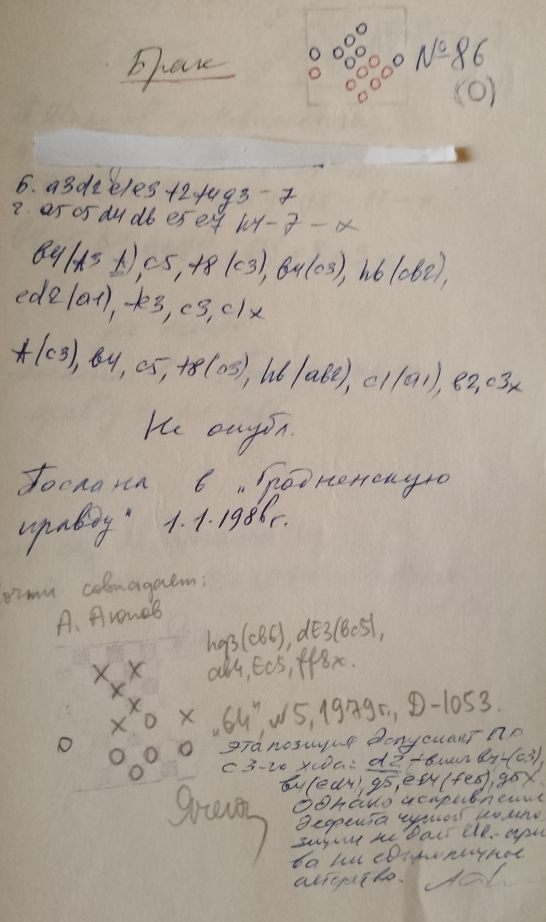 Брак
№86
(0)
б. a3 d2 e1 e3 f2 f4 g3 - 7
ч. a5 c5 d4 d6 e5 e7 h4 - 7 - x
c5, f8 (c3), b4 (c3), h6 (cb2),
ed2 (a1), c3, c1x
(c3), b4, c5, h6 (ab2), c1 (a1), b2, c3x
Не опубл.
Послана в „Гродненскую
правду" 1.1.1986г.
Почти совпадает:
А. Аюпов
hg3 (cb6), dE3 (bc5),
ab4, Ec5, ff8x.
„64", №5, 1979г., D-1053.
Эта позиция допускает ПР
с 3-го хода: d2
b4 (ed4), g5, ef4 (fe5), g5x
Однако исправление
дефекта чужой компо-
зиции не даёт
ва на единоличное
авторство.